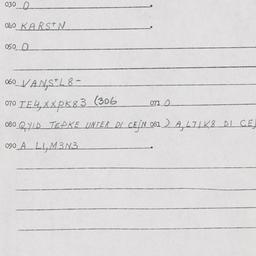 030 O
040 KARS+N
050 O
060 VANS+L8-
070 TE4,XXPK83 (306 071 O
080 Q,YID TEPKE UNTER DI CE/N 081 ) A,L71K8 DI CE
090 A LI,M3N3